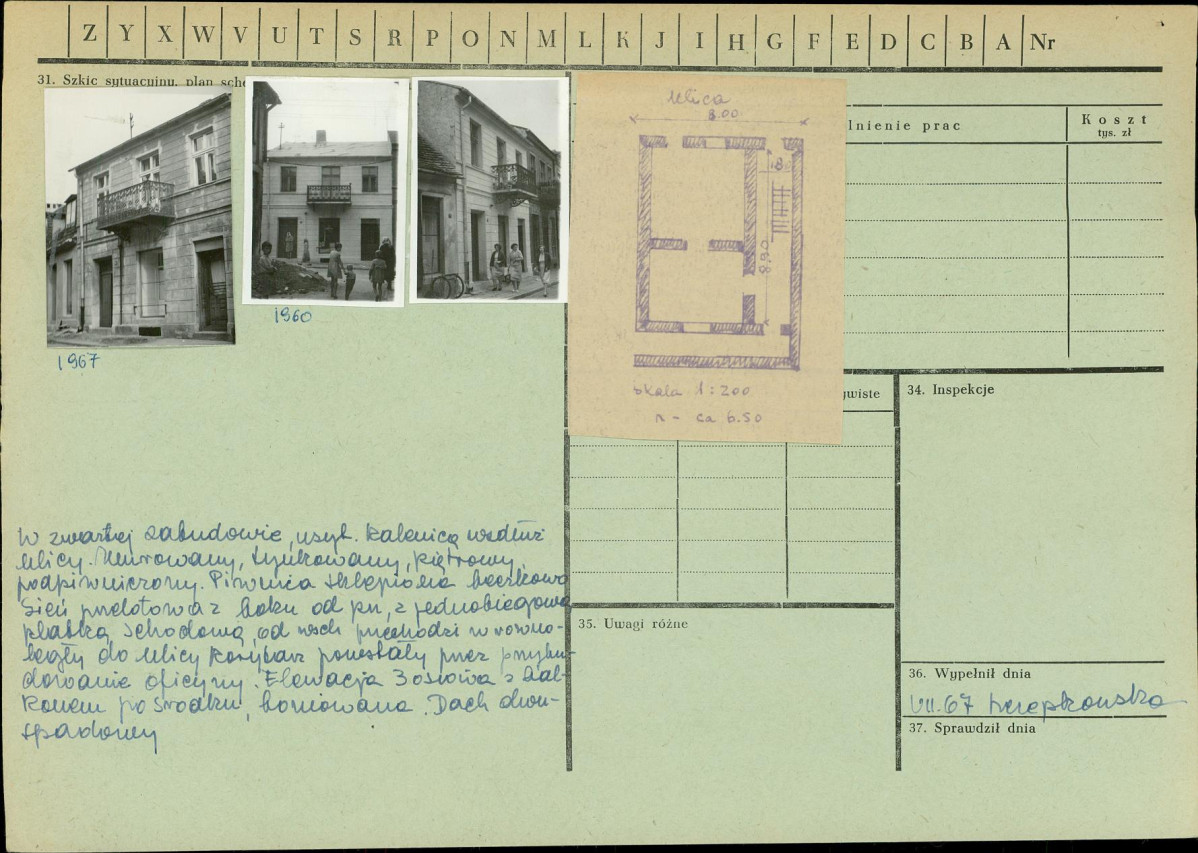 Z Y X W V U T S R P O N M L K J I H G F E D C B A Nr
31. Szkic sytuacyjny, plan sche
lnienie prac
Koszt
tys. zł
Ulica
8.00
1.80
8.60
skala 1:200
n - ca 6.50
1967
1960
ywiste
34. Inspekcje
W zwartej zabudowie, usyt. kalenicą wzdłuż
ulicy. Murowany, tynkowany, piętrowy,
podpiwniczony. Piwnica sklepiona beczkowo
Sień przelotowa z boku od pn, z jednobiegową
klatką schodową, od wsch przechodzi w równo-
legły do ulicy korytarz powstały przez przybu-
dowanie oficyny. Elewacja 3 osiowa z bal-
konem po środku, boniowana. Dach dwu-
spadowy
35. Uwagi różne
36. Wypełnił dnia
VII.67
37. Sprawdził dnia